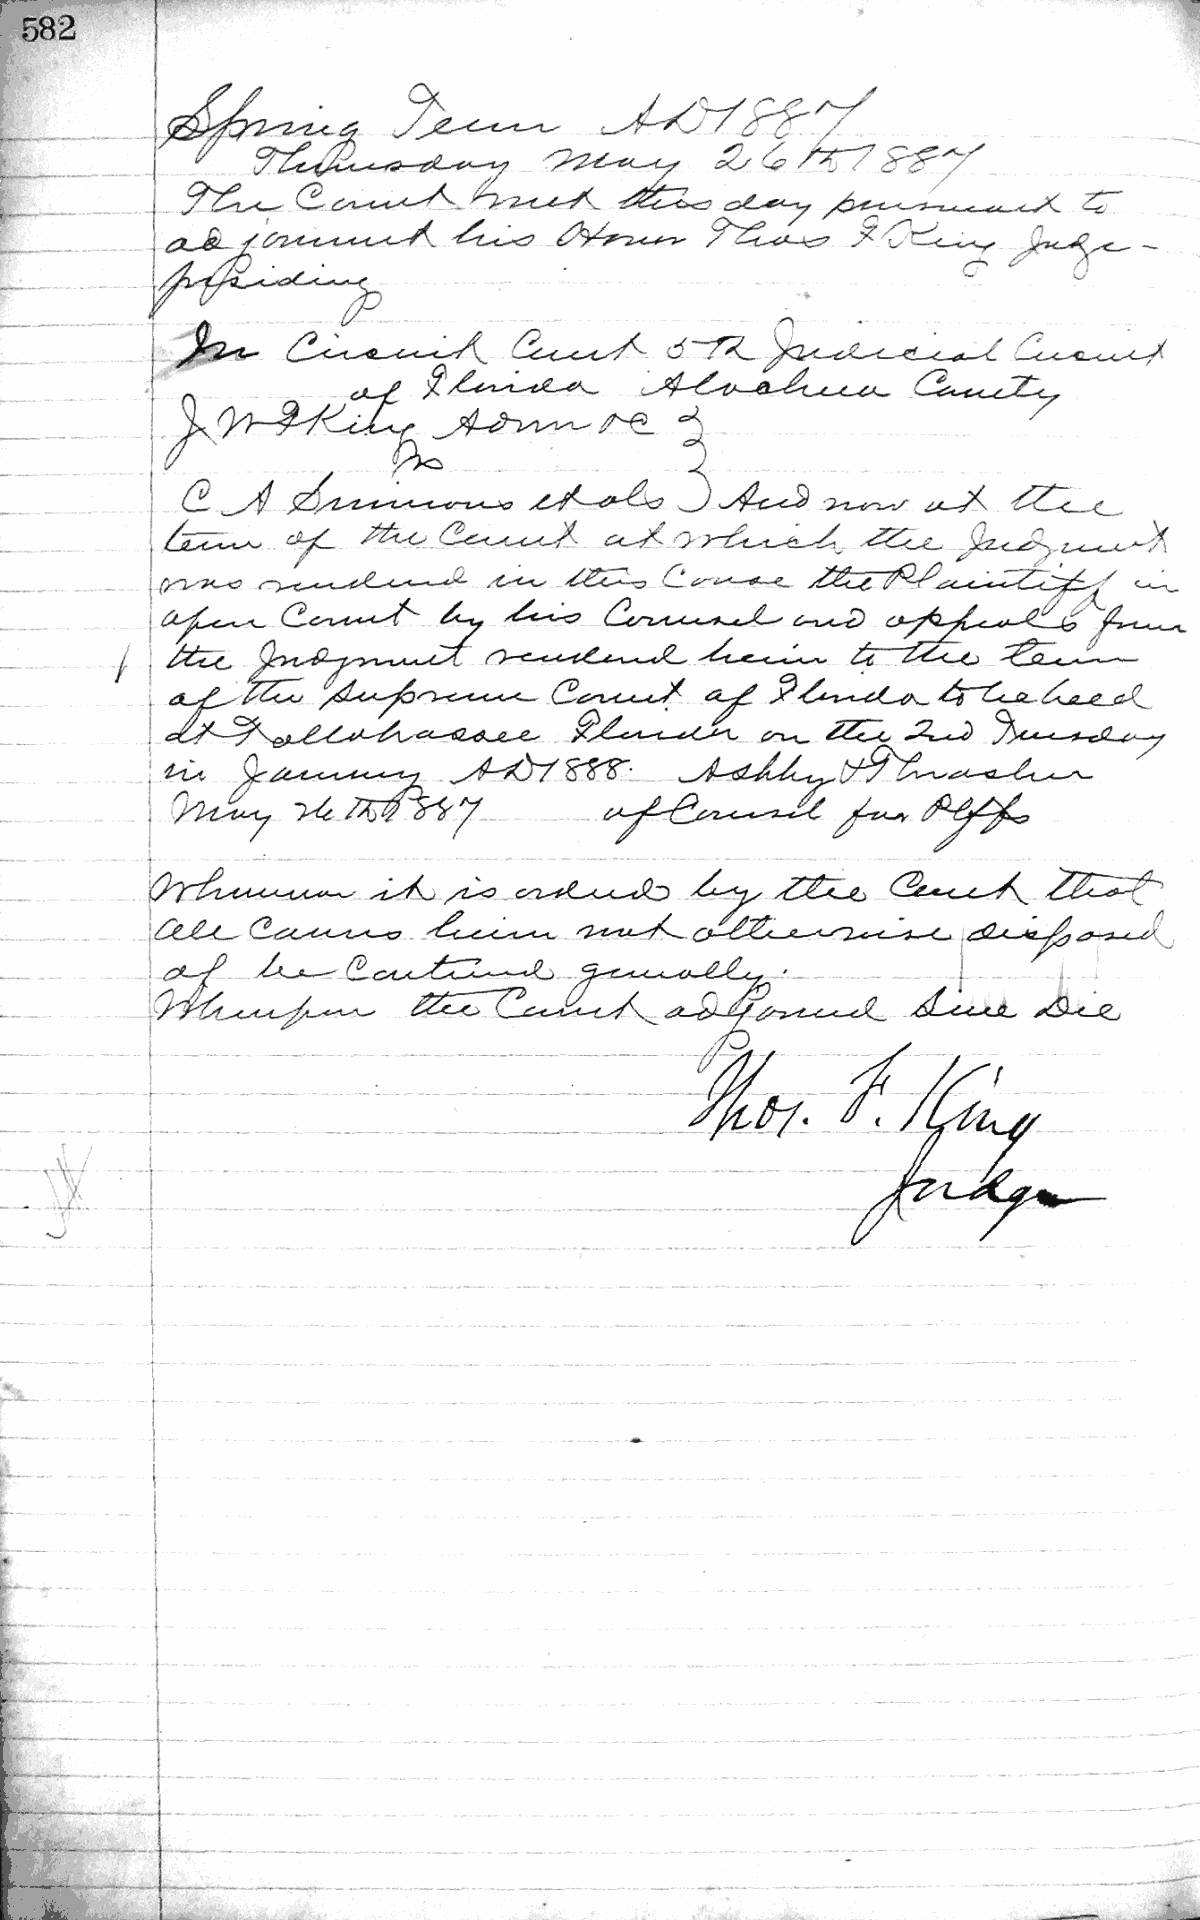 582
Spring Term AD 1887
Thursday May 26th 1887
The Court met this day pursuant to
adjornment his Honor Thos F King Judge -
presiding
In Circuit Court 5th Judicial Circuit
of Florida Alachua County
J W F King Admr &c
vs
C A Simmons et als And now at the
term of the Court at which the Judgment
was rendered in this Cause the Plaintiff in
open Court by his Counsel and appeals from
the Judgment rendered herein to the term
of the Supreme Court of Florida to be held
at Tallahassee Florida on the 2nd Tuesday
in January AD 1888. Ashby & Thrasher
May 26th 1887 of Counsel for Plffs
Whereupon it is ordered by the Court that
all Causes herein not otherwise disposed
of be Continued generally.
Whereupon the Court adjorned Sine Die
Thos. F. King
Judge